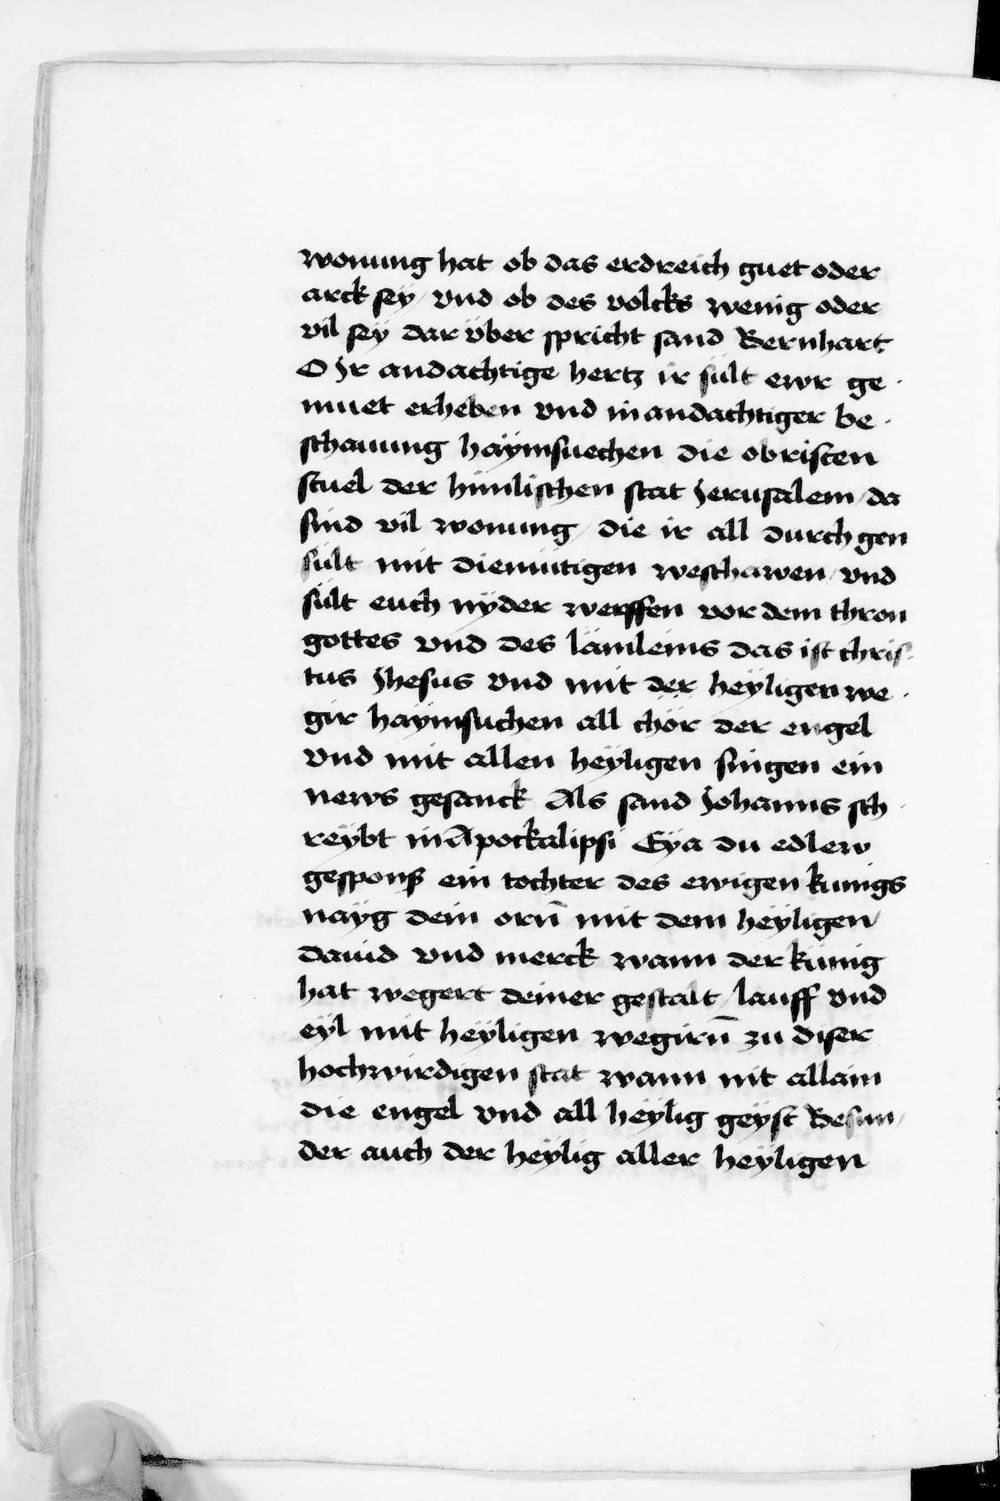 wonung hat ob das erdreich guet oder
arck seÿ / vnd ob des volcks wenig oder
vil seÿ dar vber spricht sand Bernhart
O Jr andachtige hertz ir sült ewr ge-
muet erheben vnd in andachtiger be-
schauung haÿmsuechen die obristen
stuel der himlischen stat Jerusalem / da
sind vil wonung / die ir all durch gen
sült mit diemütigen weschawen / vnd
sült euch nÿder werffen vor dem thron
gottes vnd des lämleins das ist chris-
tus Jhesus vnd mit der heÿligen we-
gir haymsuchen all chör der engel
vnd mit allen heÿligen singen ein
news gesanck Als sand Johanns sch-
reÿbt in Apockalipsi Eÿa du edlew
gesponß ein tochter des ewigen kunigs
nayg dein orn̄ mit dem heÿligen
dauid vnd merck wann der künig
hat wegert deiner gestalt / lauff vnd
eÿl mit heÿligen wegirn̄ zu diser
hochwirdigen stat wann nit allain
die engel vnd all heÿlig geÿst Besun/
der auch der heÿlig aller heÿligen